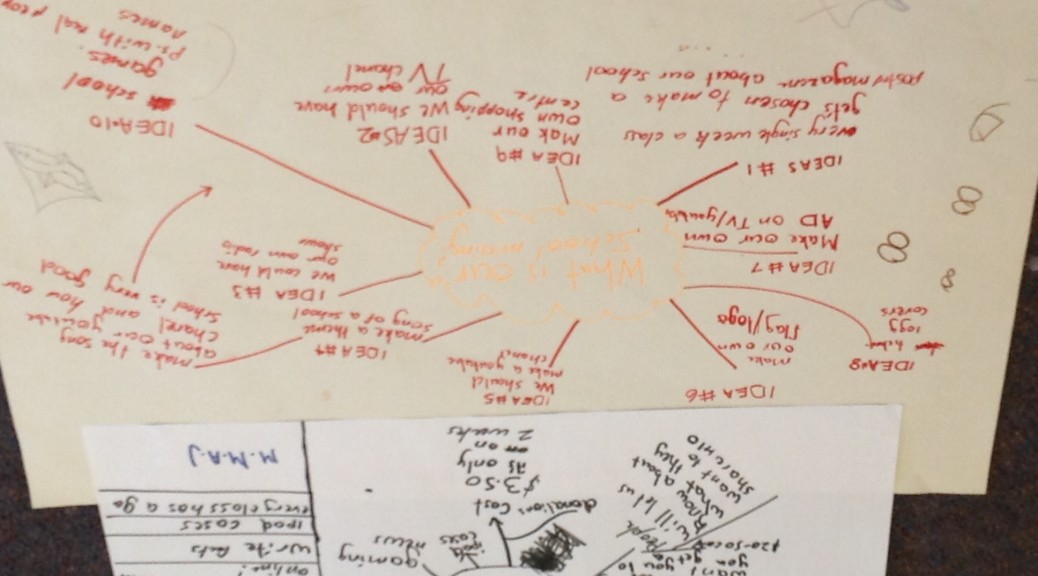 What is our
School missing
IDEAS #1
every single week a class
gets chosen to make a
about our school
IDEA #9
Mak our
own shopping
centre
IDEAS #2
We should have
our own
TV chanel
IDEA #10
school
games.
Ps. with real
names
IDEA #3
We could have
our own radio
show
IDEA #4
make a theme
song of a school
make the song
about our youtube
chanel and how our
School is very good
IDEA #5
We should
make a youtube
chanel
IDEA #6
make
our own
flag/logo
IDEA #7
Make our own
AD on TV/youtube
IDEA #8
covers
M.M.A.J
every class has a go
ipad cases
write
online
gaming
news
cases
donations cost
$3.50
as only
on
2 weeks
People
will let us
know
what about
want to they
share into
you
get you to
want